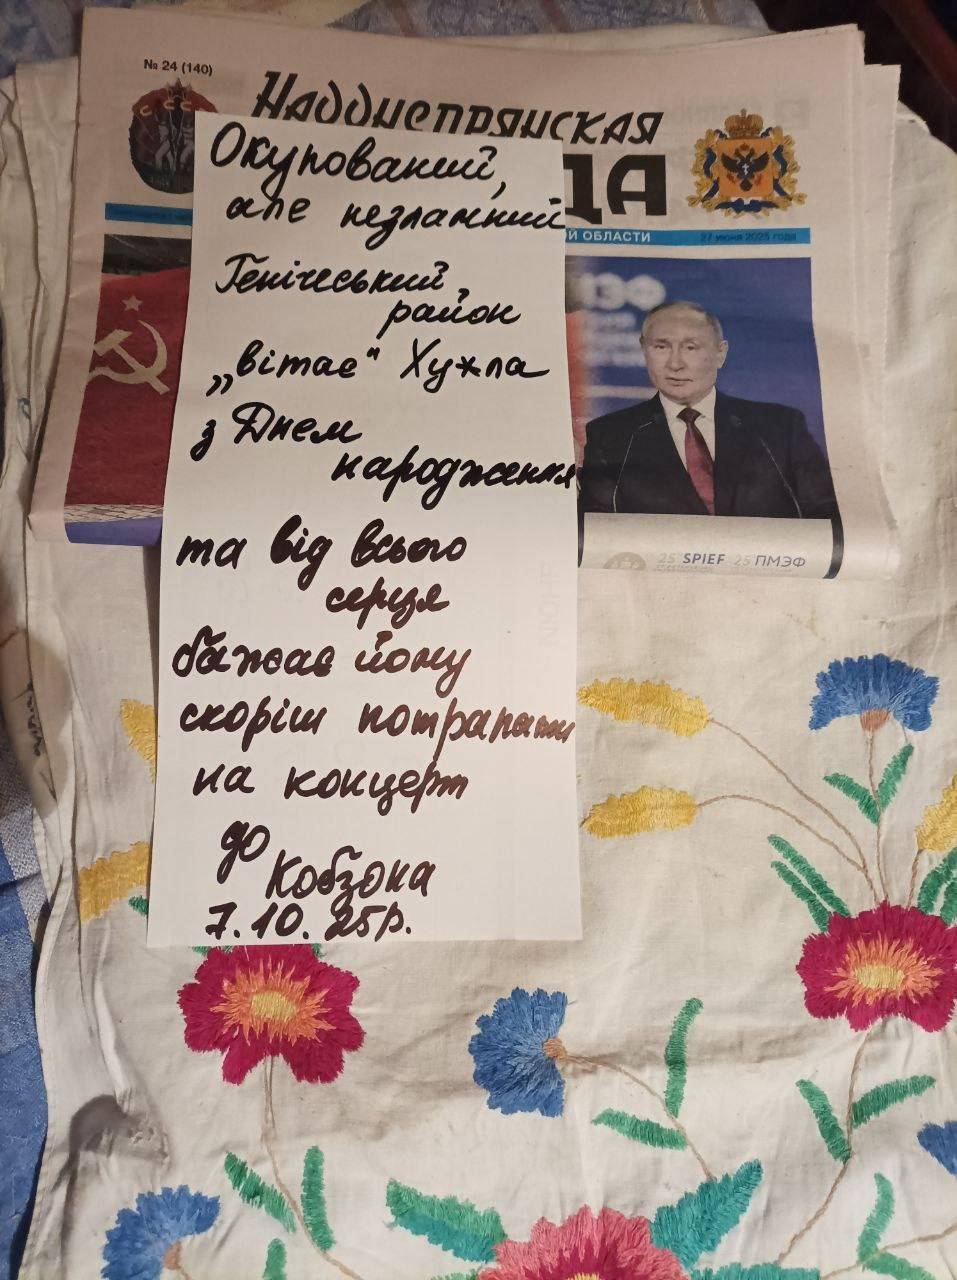 № 24 (140)
НАДДНЕПРЯНСКАЯ
ДА
ОЙ ОБЛАСТИ
27 июня 2025 года
Окупований,
але незламний
Генічеський
район
„вітає" Ху*ла
з Днем
народження
та від всього
серця
бажає йому
скоріш потрапити
на концерт
до
Кобзона
7.10.25р.
25 SPIEF 25 ПМЭФ